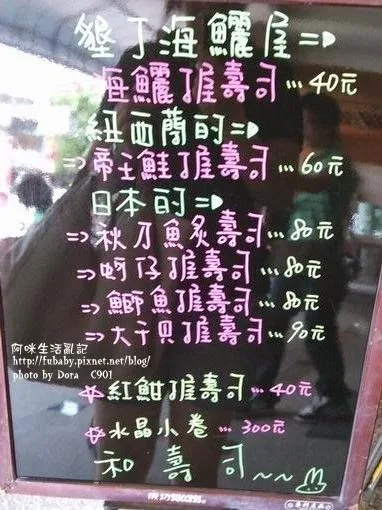 墾丁海鱺屋⇒
海鱺握壽司…40元
紐西蘭的⇒
⇒帝王鮭握壽司…60元
日本的⇒
⇒秋刀魚炙壽司…80元
⇒蚵仔握壽司…80元
⇒鰤魚握壽司…80元
⇒大干貝握壽司…90元
阿咪生活亂記
http://fubaby.pixnet.net/blog/
photo by Dora C901
☆紅魽握壽司…40元
☆水晶小卷…300元
和壽司~~
SUCCESS